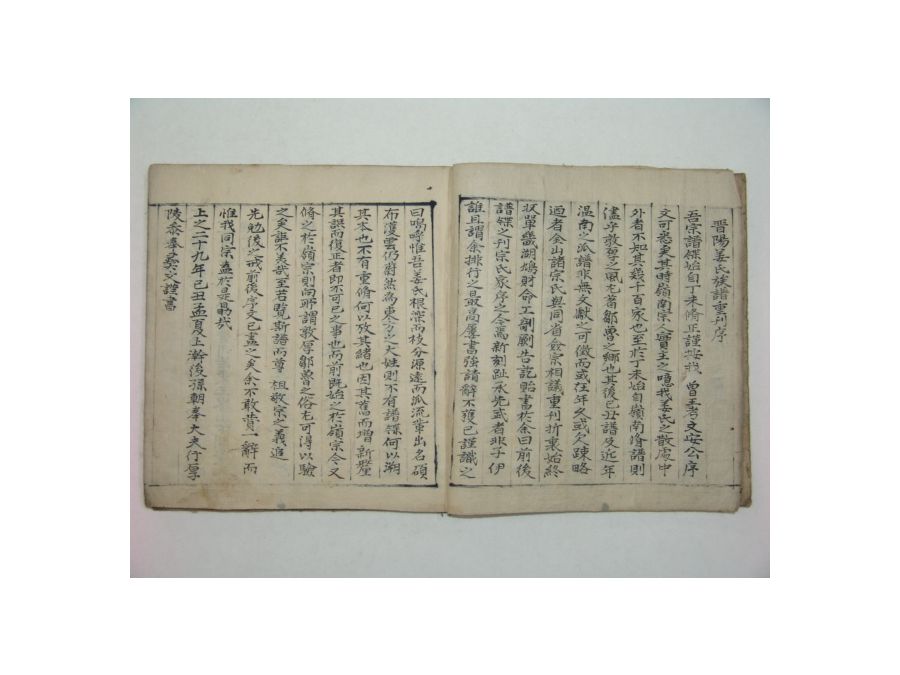 晋陽姜氏族譜重刊序
吾宗譜牒始自丁未脩正謹按我 曾王考文安公序
文可悉矣其時嶺南宗人實主之噫我姜氏之散處中
外者不知其幾千百家也至於丁未始自嶺南脩譜則
儘乎敦
鄒魯之鄉也其後己丑譜及近年
溫南之派譜非無文獻之可徵而或在年久或欠疎略
迺者僉出諸宗氏與同省僉宗相議重刊折衷始終
收單
鳩財命工剞劂告訖貽書於余曰前後
譜牒之刊宗氏家序之今焉新刻趾承先武者非子伊
誰且謂余排行之最高屢書強請辭不獲已謹識之
曰嗚呼惟吾姜氏根深而枝分源遠而派流輩出名碩
布濩雲仍蔚然為東方之大姓則不有譜牒何以溯
其本也不有重脩何以攷其緒也因其舊而增新釐
其誤而復正者即不可已之事也而前既始之於嶺宗今又
脩之於嶺宗則向所謂敦厚鄒魯之俗尤可得以驗
之矣詎不美哉至若覽斯譜而尊 祖敬宗之義追
先勉後之戒前後序文已盡之矣余不敢贅一辭而
惟我同宗盍於是勗哉
上之二十九年己丑孟夏上澣後孫朝奉大夫行厚
陵參奉彝文謹書